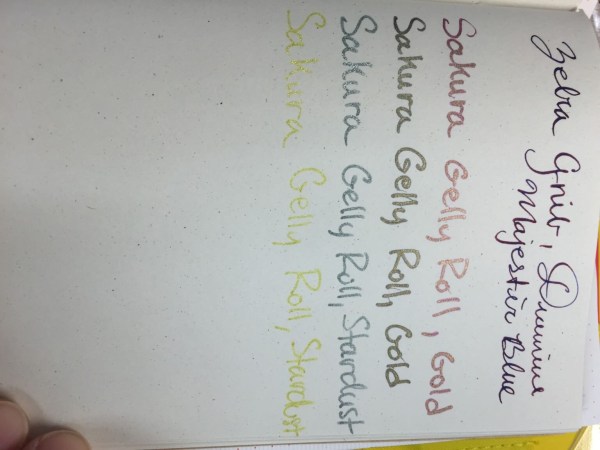 Zebra Gnib, Diamine
Majestic Blue
Sakura Gelly Roll, Gold
Sakura Gelly Roll, Gold
Sakura Gelly Roll, Stardust
Sakura Gelly Roll, Stardust